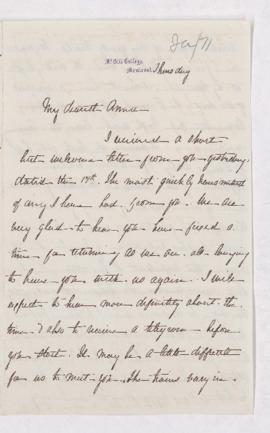 Jan/71
McGill College,
Montreal, Thursday
My dearest Annie
I received a short
but welcome letter from you yesterday
dated the 17th. The most quickly transmitted
of any I have had from you. We are
very glad to hear you have fixed a
time for returning as we are all longing
to have you with us again. I will
expect to hear more definitely about the
time & also to receive a telegram before
you start. It may be a little difficult
for us to meet you. The trains vary in